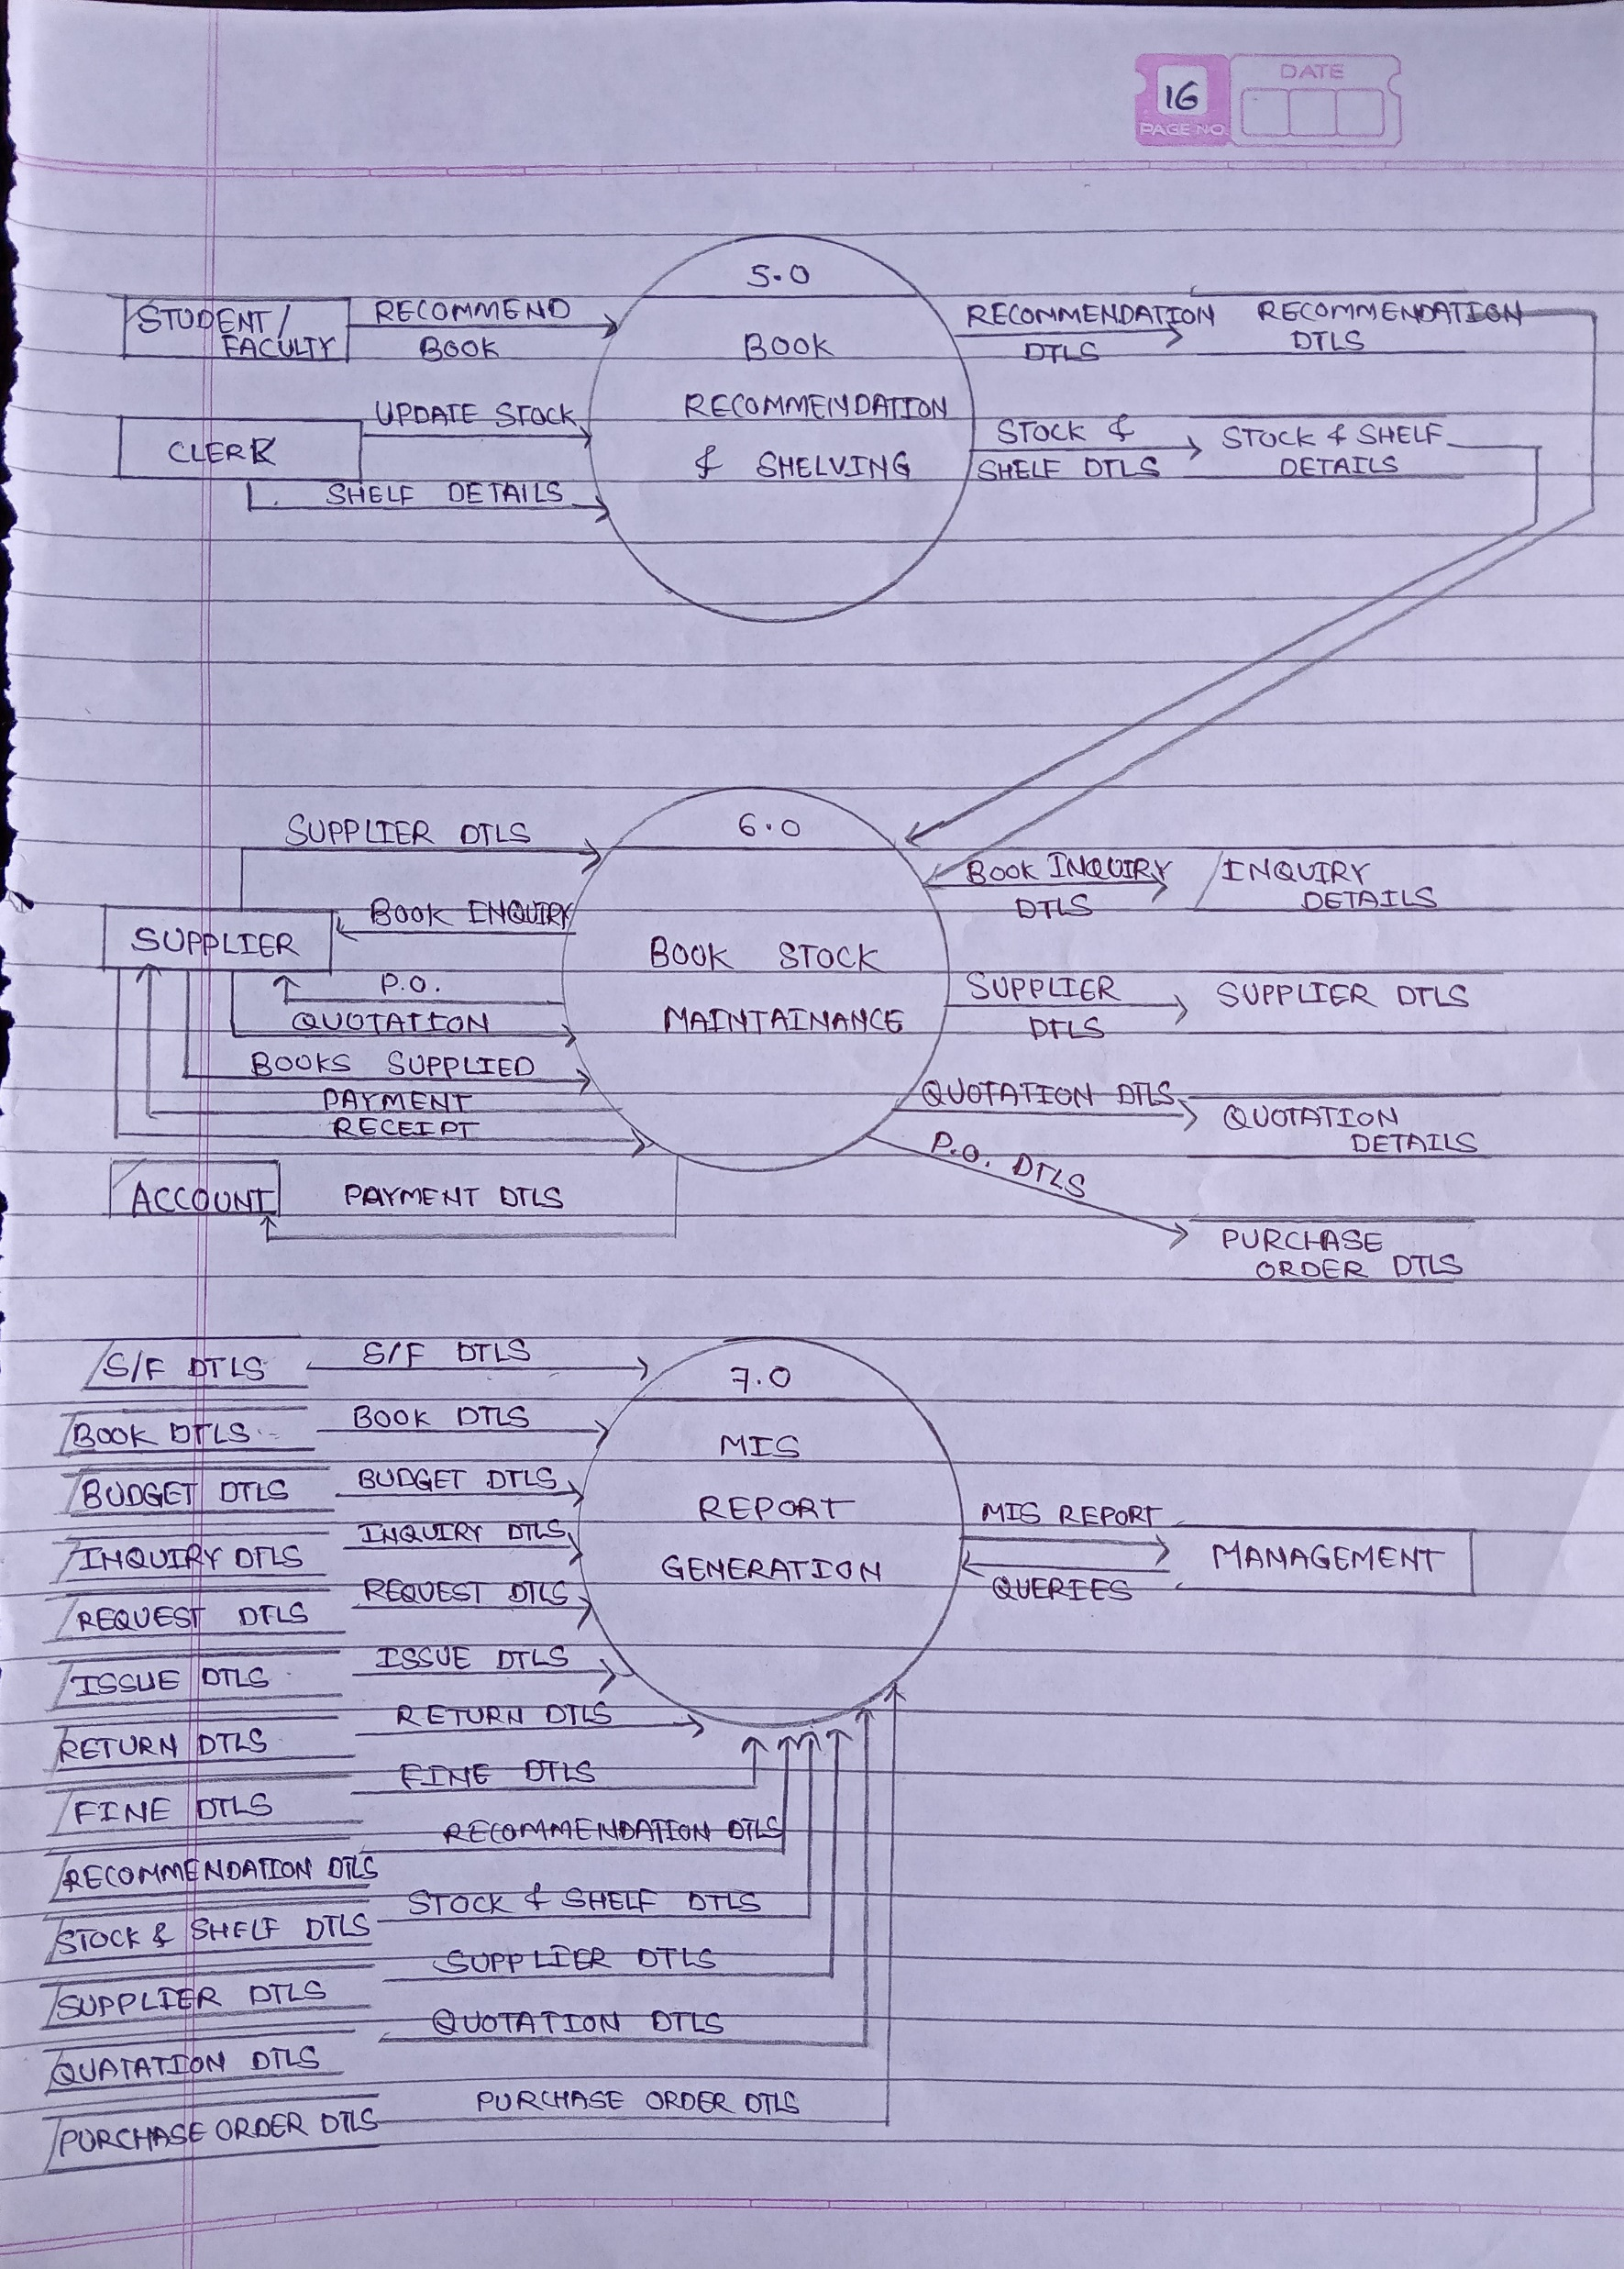 DATE
16
PAGE NO.
5.0
STUDENT/
FACULTY
RECOMMEND
BOOK
BOOK
RECOMMENDATION
& SHELVING
RECOMMENDATION
DTLS
RECOMMENDATION
DTLS
CLERK
UPDATE STOCK
SHELF DETAILS
STOCK &
SHELF DTLS
STOCK & SHELF
DETAILS
6.0
BOOK STOCK
MAINTAINANCE
SUPPLIER DTLS
BOOK ENQUIRY
SUPPLIER
P.O.
QUOTATION
BOOKS SUPPLIED
PAYMENT
RECEIPT
ACCOUNT
PAYMENT DTLS
BOOK INQUIRY
DTLS
INQUIRY
DETAILS
SUPPLIER
DTLS
SUPPLIER DTLS
QUOTATION DTLS
QUOTATION
DETAILS
P.O. DTLS
PURCHASE
ORDER DTLS
7.0
MIS
REPORT
GENERATION
S/F DTLS
S/F DTLS
BOOK DTLS
BOOK DTLS
BUDGET DTLS
BUDGET DTLS
INQUIRY DTLS
INQUIRY DTLS
REQUEST DTLS
REQUEST DTLS
ISSUE DTLS
ISSUE DTLS
RETURN DTLS
RETURN DTLS
FINE DTLS
FINE DTLS
RECOMMENDATION DTLS
RECOMMENDATION DTLS
STOCK & SHELF DTLS
STOCK & SHELF DTLS
SUPPLIER DTLS
SUPPLIER DTLS
QUATATION DTLS
QUOTATION DTLS
PURCHASE ORDER DTLS
PURCHASE ORDER DTLS
MIS REPORT
QUERIES
MANAGEMENT